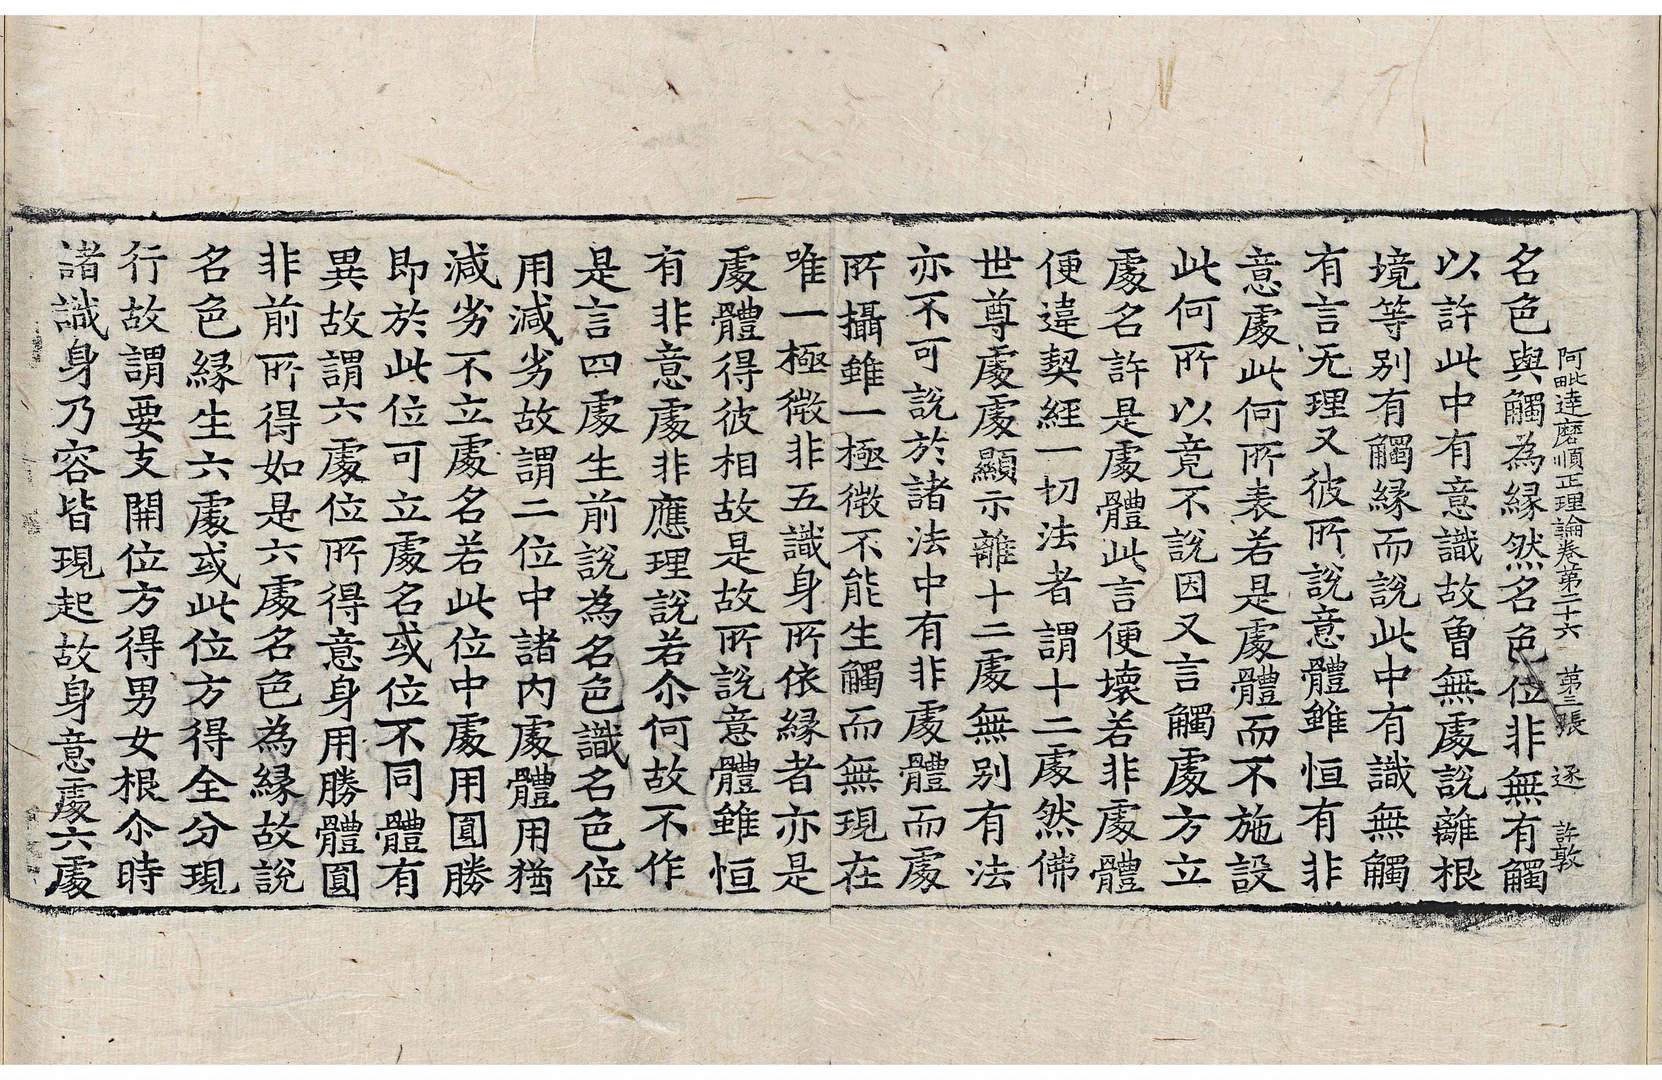 阿毗達磨順正理論卷第二十六 第三張 逐 許敦
名色與觸為緣然名色位非無有觸
以許此中有意識故曾無處說離根
境等別有觸緣而說此中有識無觸
有言无理又彼所說意體雖恒有非
意處此何所表若是處體而不施設
此何所以竟不說因又言觸處方立
處名許是處體此言便壞若非處體
便違契經一切法者謂十二處然佛
世尊處處顯示離十二處無別有法
亦不可說於諸法中有非處體而處
所攝雖一極微不能生觸而無現在
唯一極微非五識身所依緣者亦是
處體得彼相故是故所說意體雖恒
有非意處非應理說若尒何故不作
是言四處生前說為名色識名色位
用減劣故謂二位中諸內處體用猶
減劣不立處名若此位中處用圓勝
即於此位可立處名或位不同體有
異故謂六處位所得意身用勝體圓
非前所得如是六處名色為緣故說
名色緣生六處或此位方得全分現
行故謂要支開位方得男女根尒時
諸識身乃容皆現起故身意處六處